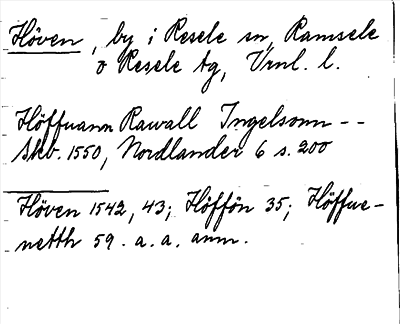 Höven, by i Resele sn, Ramsele
o Resele tg, Vrnl. l.
Höffuann Rawall Ingelsonn - -
Skb. 1550, Nordlander 6 s. 200
Höven 1542, 43; Höffön 35; Höffue-
netth 59. a. a. anm.